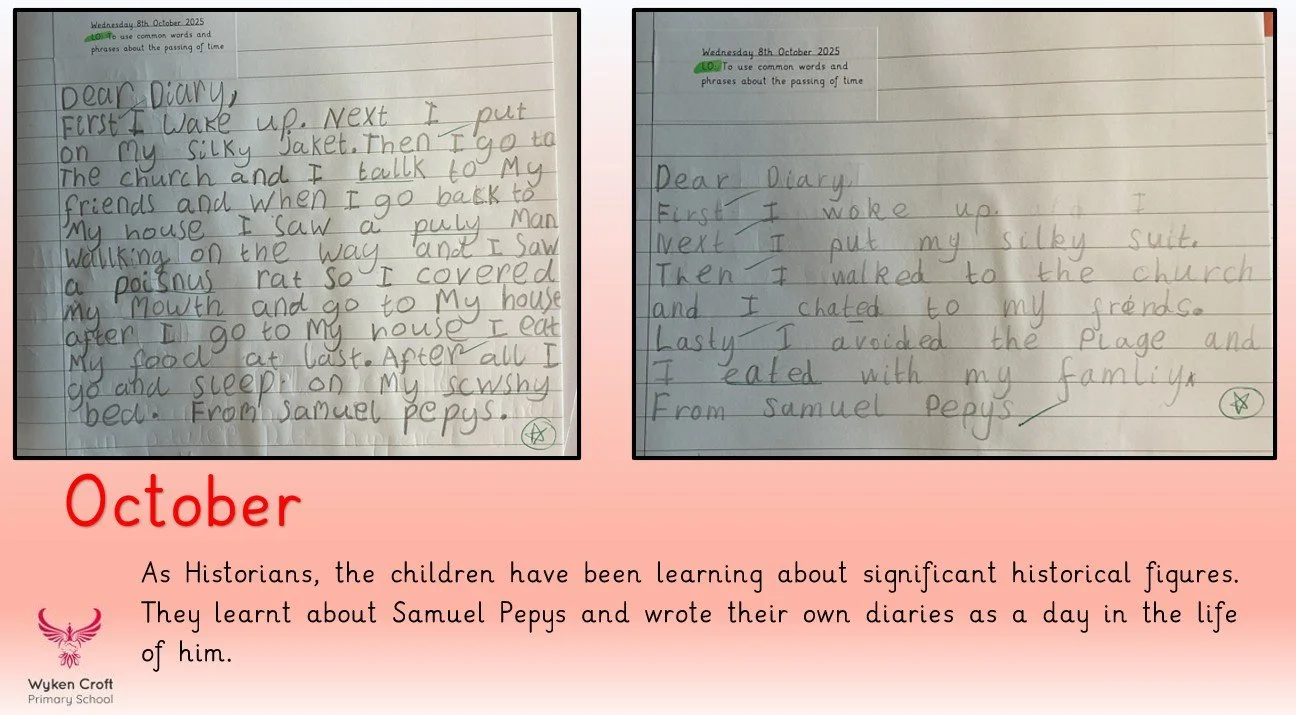 Wednesday 8th October 2025
LO: To use common words and
phrases about the passing of time
Dear Diary,
First I wake up. Next I put
on my silky Jaket. Then I go to
The church and I tallk to My
friends and when I go back to
My house I saw a puly Man
wallking on the way and I saw
a poisnus rat so I covered
my Mowth and go to My house
after I go to My house I eat
My food at last. After all I
go and sleep on My scwshy
bed. From Samuel pepys.
Wednesday 8th October 2025
LO: To use common words and
phrases about the passing of time
Dear Diary,
First I woke up. I
Next I put my silky suit.
Then I walked to the church
and I chated to my frends.
Lasty I avoided the Plage and
I eated with my famliy
From Samuel Pepys
October
As Historians, the children have been learning about significant historical figures.
They learnt about Samuel Pepys and wrote their own diaries as a day in the life
of him.
Wyken Croft
Primary School